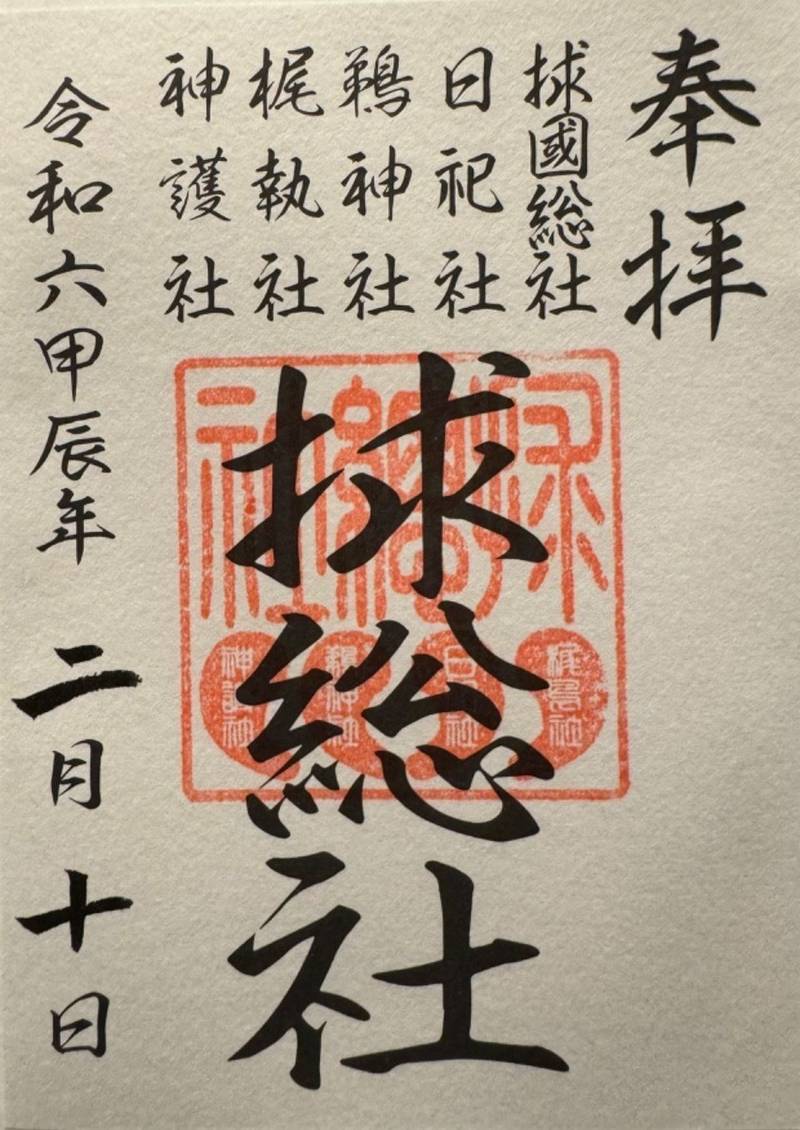 奉拝
捄國総社
日祀社
鵜神社
梶執社
神護社
捄総社
令和六甲辰年 二月十日